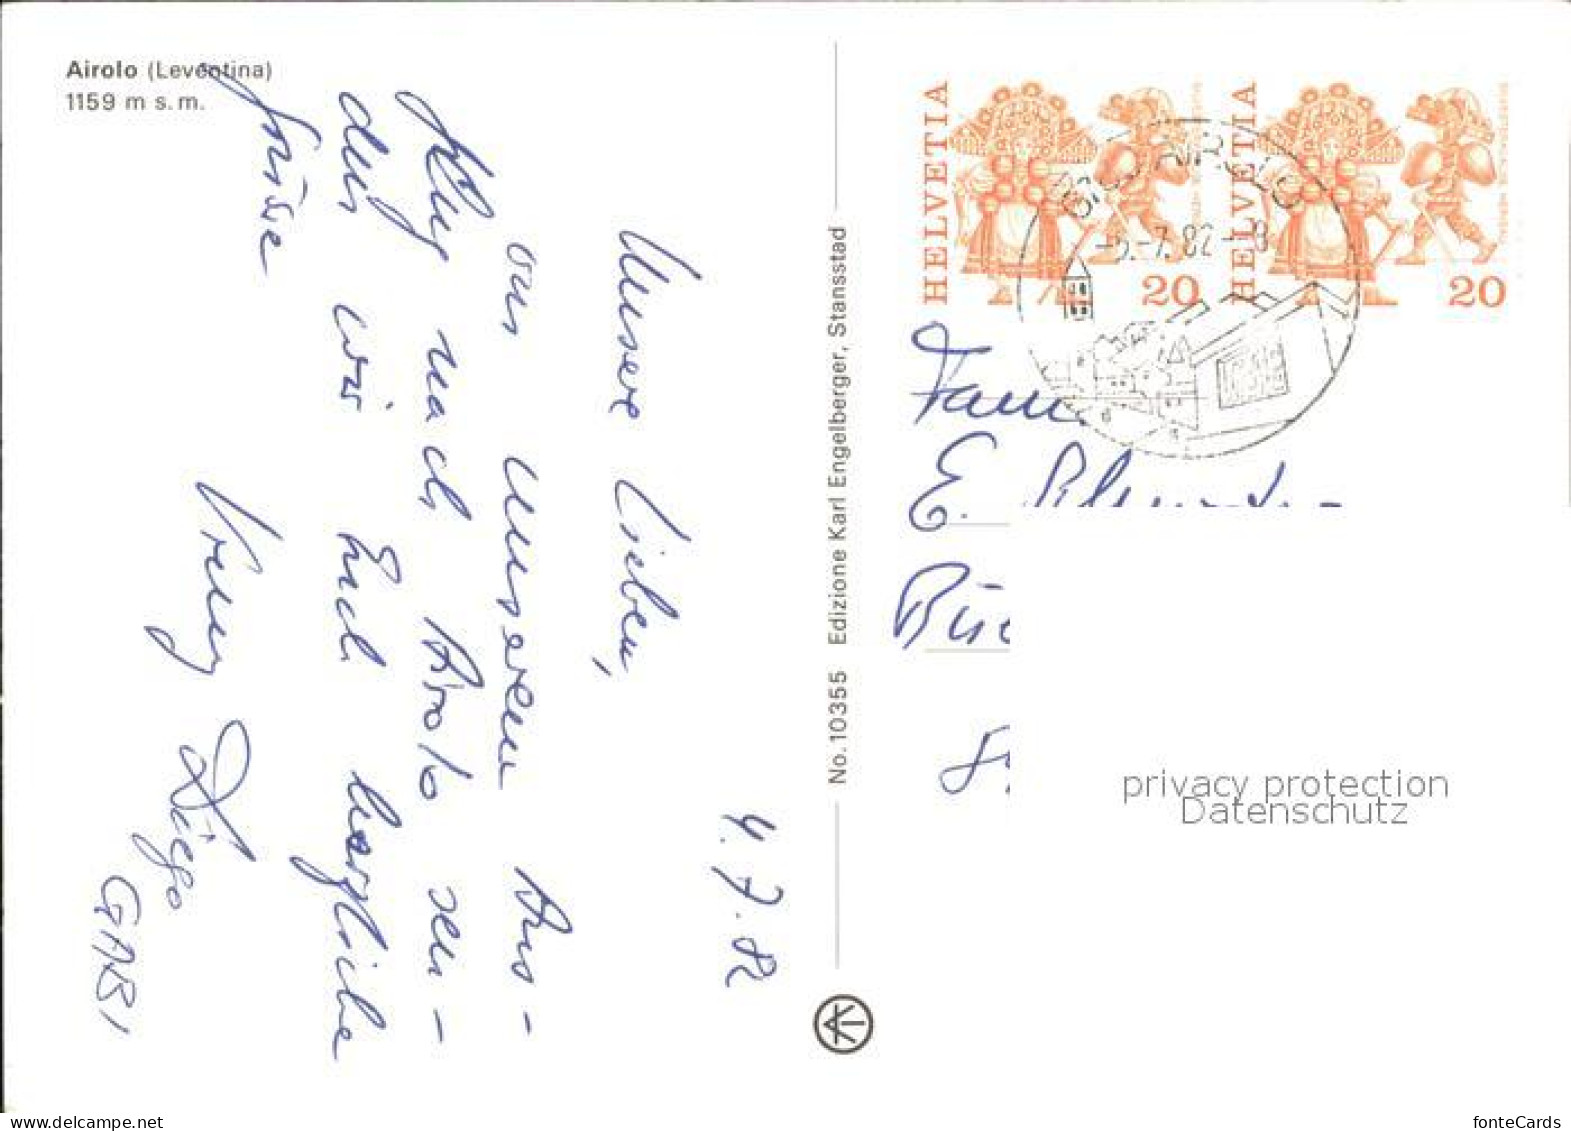 Airolo (Leventina)
1159 m s.m.
4.7.82
Unsere Lieben,
von unserem Aus-
flug nach Airolo sen-
den wir Euch herzliche
Grüsse
Vreny Diego
GABI
No. 10355 Edizione Karl Engelberger, Stansstad
HELVETIA
20
HELVETIA
20
6780 AIROLO
-5.-7.82-8
Fam
E.
privacy protection
Datenschutz
www.delcampe.net
fonteCards